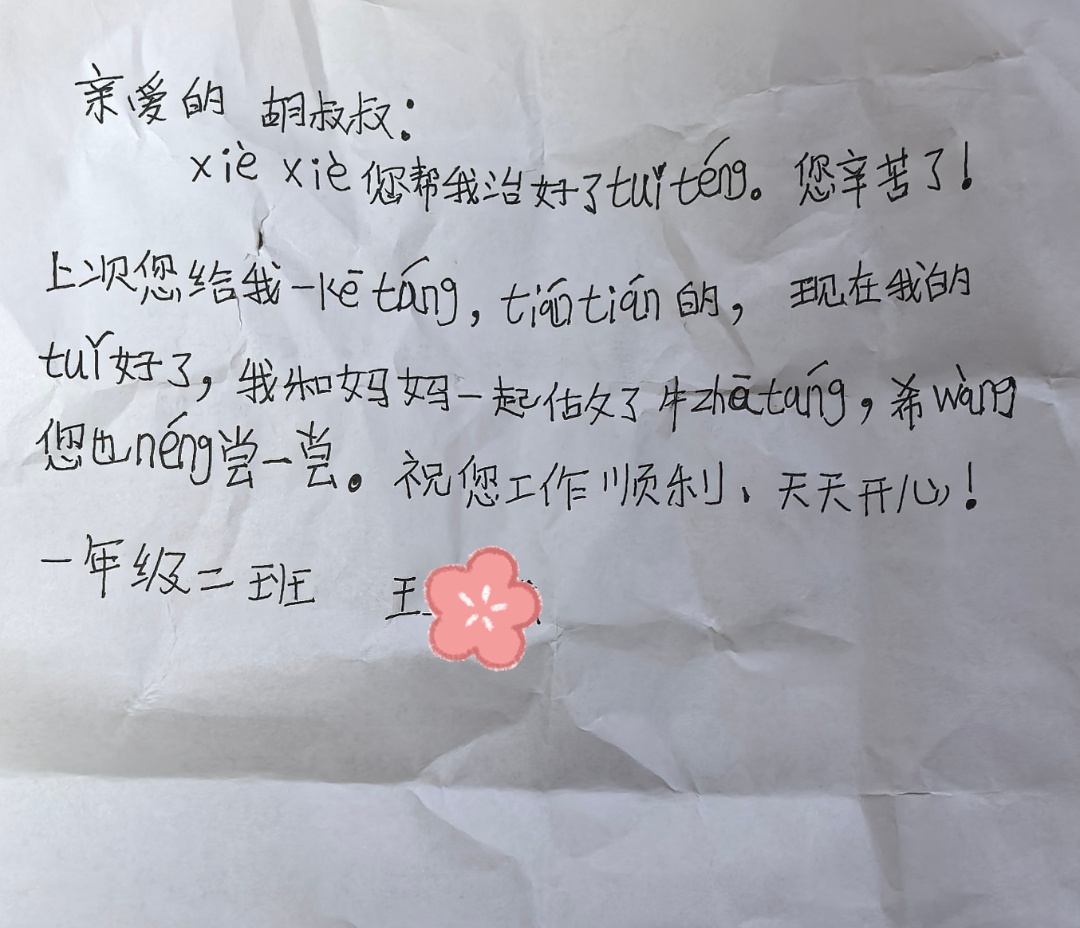 亲爱的 胡叔叔：
xiè xiè 您帮我治好了tuǐ téng。您辛苦了！
上次您给我一kē táng，tián tián 的，现在我的
tuǐ好了，我和妈妈一起做了牛zhá táng，希wàng
您也néng尝一尝。祝您工作顺利、天天开心！
一年级二班 王